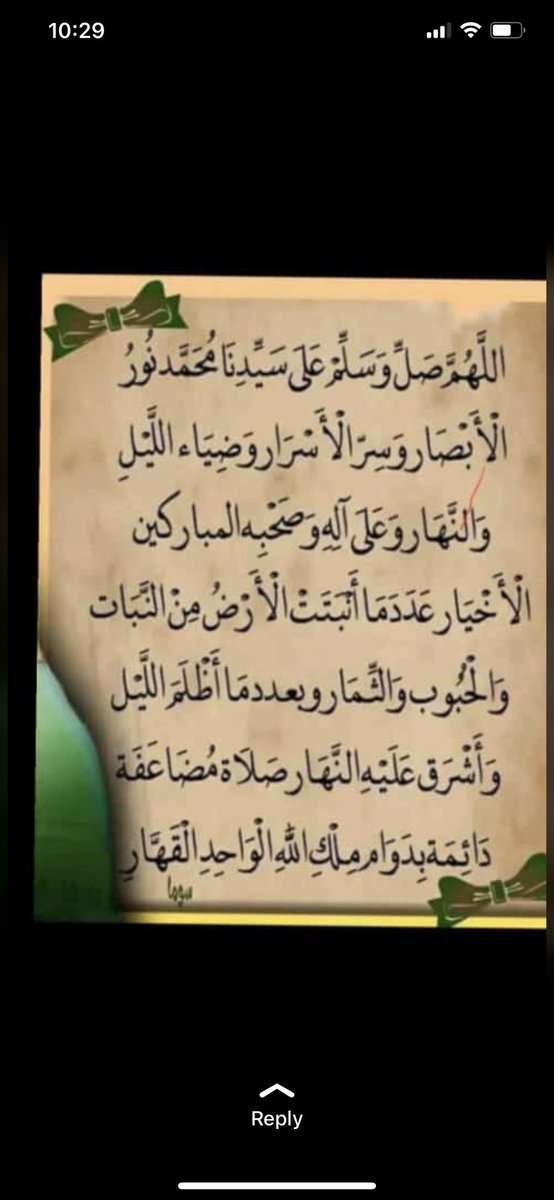 10:29
اللَّهُمَّ صَلِّ وَسَلِّمْ عَلَى سَيِّدِنَا مُحَمَّد نُورُ
الْأَبْصَار وَسِرّ الْأَسْرَار وَضِيَاء اللَّيْلِ
وَالنَّهَار وَعَلَى آلِهِ وَصَحْبِه المباركين
الْأَخْيَار عَدَدَ مَا أَنْبَتَتْ الْأَرْضُ مِنْ النَّبَات
وَالْحُبُوب وَالثِّمَار وبعدد مَا أَظْلَمَ اللَّيْل
وَأَشْرَق عَلَيْهِ النَّهَار صَلَاة مُضَاعَفَة
دَائِمَة بِدَوَام مِلْكِ اللهِ الْوَاحِدِ الْقَهَّارِ
سوما
Reply